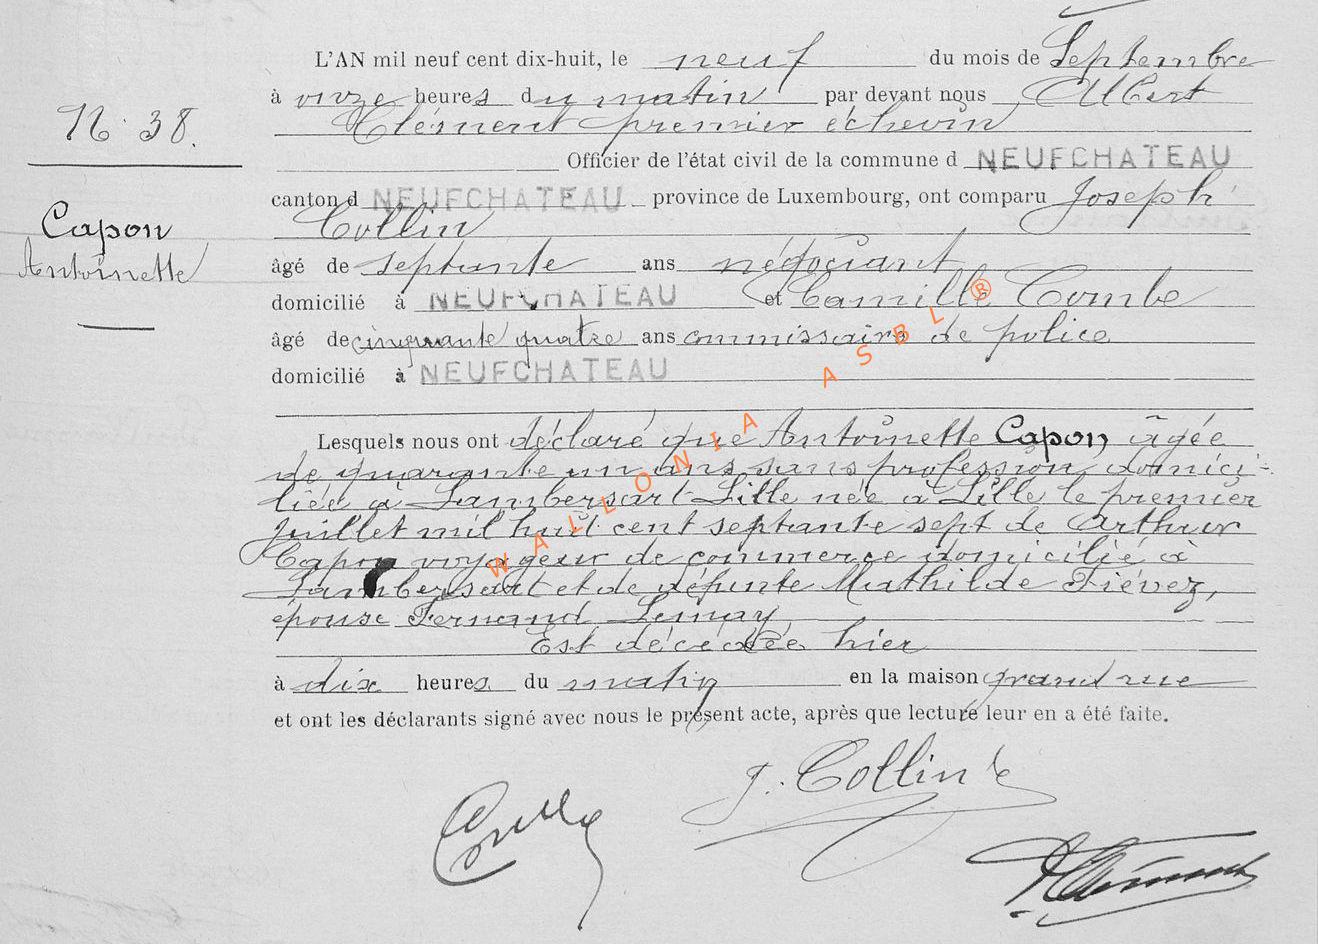 L'AN mil neuf cent dix-huit, le neuf du mois de Septembre
à onze heures du matin par devant nous Albert
Clément premier échevin
N. 38.
Officier de l'état civil de la commune d NEUFCHATEAU
canton d NEUFCHATEAU province de Luxembourg, ont comparu Joseph
Capon
Antoinette
Collin
âgé de septante ans négociant
domicilié à NEUFCHATEAU et Camille Combe
âgé de cinquante quatre ans commissaire de police
domicilié à NEUFCHATEAU
Lesquels nous ont déclaré que Antoinette Capon âgée
de quarante un ans sans profession domici-
liée à Lambersart-Lille née à Lille le premier
Juillet mil huit cent septante sept de Arthur
Capon voyageur de commerce domicilié à
Lambersart et de défunte Mathilde Fiévez,
épouse Fernand Lemay
Est décédée hier
à dix heures du matin en la maison grand rue
et ont les déclarants signé avec nous le présent acte, après que lecture leur en a été faite.
J. Collin
WALLONIA ASBL ®